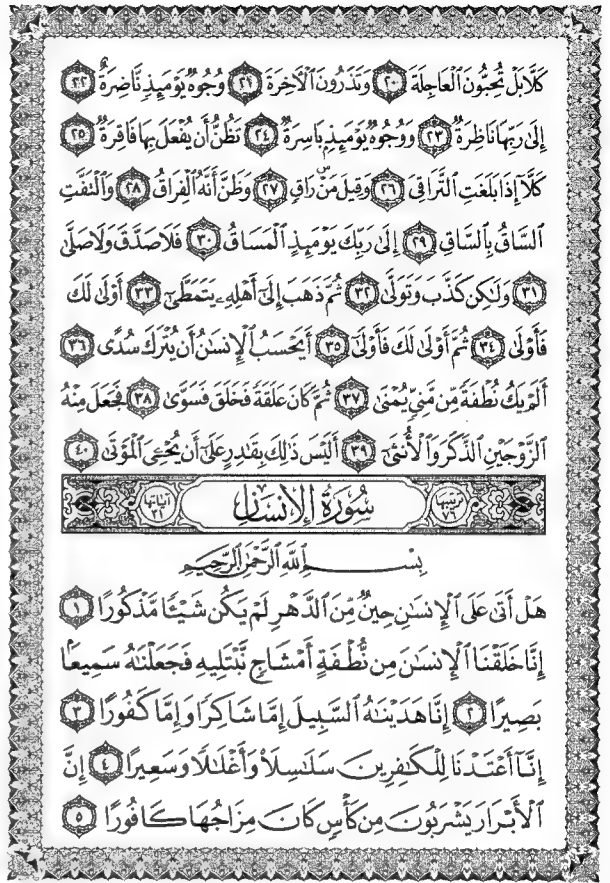 كَلَّا بَلْ تُحِبُّونَ ٱلْعَاجِلَةَ ٢٠ وَتَذَرُونَ ٱلْأَخِرَةَ ٢١ وُجُوهٌ يَوْمَئِذٍ نَّاضِرَةٌ ٢٢
إِلَىٰ رَبِّهَا نَاظِرَةٌ ٢٣ وَوُجُوهٌ يَوْمَئِذٍۭ بَاسِرَةٌ ٢٤ تَظُنُّ أَن يُفْعَلَ بِهَا فَاقِرَةٌ ٢٥
كَلَّآ إِذَا بَلَغَتِ ٱلتَّرَاقِىَ ٢٦ وَقِيلَ مَنْ ۜ رَاقٍ ٢٧ وَظَنَّ أَنَّهُ ٱلْفِرَاقُ ٢٨ وَٱلْتَفَّتِ
ٱلسَّاقُ بِٱلسَّاقِ ٢٩ إِلَىٰ رَبِّكَ يَوْمَئِذٍ ٱلْمَسَاقُ ٣٠ فَلَا صَدَّقَ وَلَا صَلَّىٰ
٣١ وَلَـٰكِن كَذَّبَ وَتَوَلَّىٰ ٣٢ ثُمَّ ذَهَبَ إِلَىٰٓ أَهْلِهِۦ يَتَمَطَّىٰٓ ٣٣ أَوْلَىٰ لَكَ
فَأَوْلَىٰ ٣٤ ثُمَّ أَوْلَىٰ لَكَ فَأَوْلَىٰٓ ٣٥ أَيَحْسَبُ ٱلْإِنسَـٰنُ أَن يُتْرَكَ سُدًى ٣٦
أَلَمْ يَكُ نُطْفَةً مِّن مَّنِىٍّ يُمْنَىٰ ٣٧ ثُمَّ كَانَ عَلَقَةً فَخَلَقَ فَسَوَّىٰ ٣٨ فَجَعَلَ مِنْهُ
ٱلزَّوْجَيْنِ ٱلذَّكَرَ وَٱلْأُنثَىٰٓ ٣٩ أَلَيْسَ ذَٰلِكَ بِقَـٰدِرٍ عَلَىٰٓ أَن يُحْـِۧىَ ٱلْمَوْتَىٰ ٤٠
ترتيبها ٧٦ سُورَةُ ٱلْإِنسَانِ آياتها ٣١
بِسْمِ ٱللَّهِ ٱلرَّحْمَـٰنِ ٱلرَّحِيمِ
هَلْ أَتَىٰ عَلَى ٱلْإِنسَـٰنِ حِينٌ مِّنَ ٱلدَّهْرِ لَمْ يَكُن شَيْـًٔا مَّذْكُورًا ١
إِنَّا خَلَقْنَا ٱلْإِنسَـٰنَ مِن نُّطْفَةٍ أَمْشَاجٍ نَّبْتَلِيهِ فَجَعَلْنَـٰهُ سَمِيعًۢا
بَصِيرًا ٢ إِنَّا هَدَيْنَـٰهُ ٱلسَّبِيلَ إِمَّا شَاكِرًا وَإِمَّا كَفُورًا ٣
إِنَّآ أَعْتَدْنَا لِلْكَـٰفِرِينَ سَلَـٰسِلَا۟ وَأَغْلَـٰلًا وَسَعِيرًا ٤ إِنَّ
ٱلْأَبْرَارَ يَشْرَبُونَ مِن كَأْسٍ كَانَ مِزَاجُهَا كَافُورًا ٥